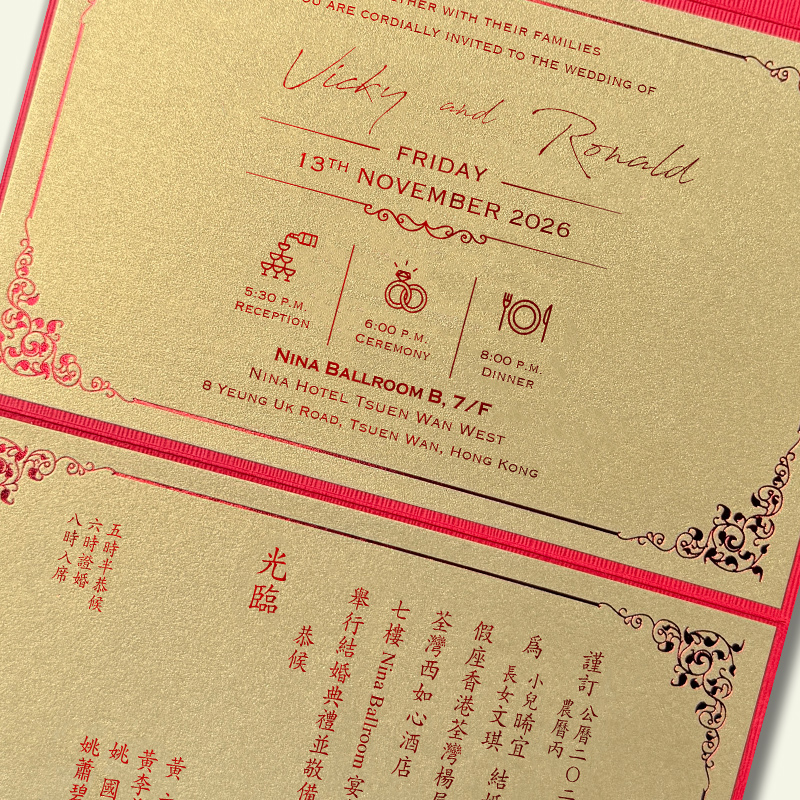 WITH THEIR FAMILIES
YOU ARE CORDIALLY INVITED TO THE WEDDING OF
Vicky and Ronald
FRIDAY
13TH NOVEMBER 2026
5:30 P.M.
RECEPTION
6:00 P.M.
CEREMONY
8:00 P.M.
DINNER
NINA BALLROOM B, 7/F
NINA HOTEL TSUEN WAN WEST
8 YEUNG UK ROAD, TSUEN WAN, HONG KONG
謹訂
公曆二〇二
農曆丙
為
小兒晞宜
長女文琪
結
假座香港荃灣楊屋
荃灣西如心酒店
七樓 Nina Ballroom 宴
舉行結婚典禮並敬備
恭候
光臨
五時半恭候
六時證婚
八時入席
黃
黃李
姚國
姚蕭碧